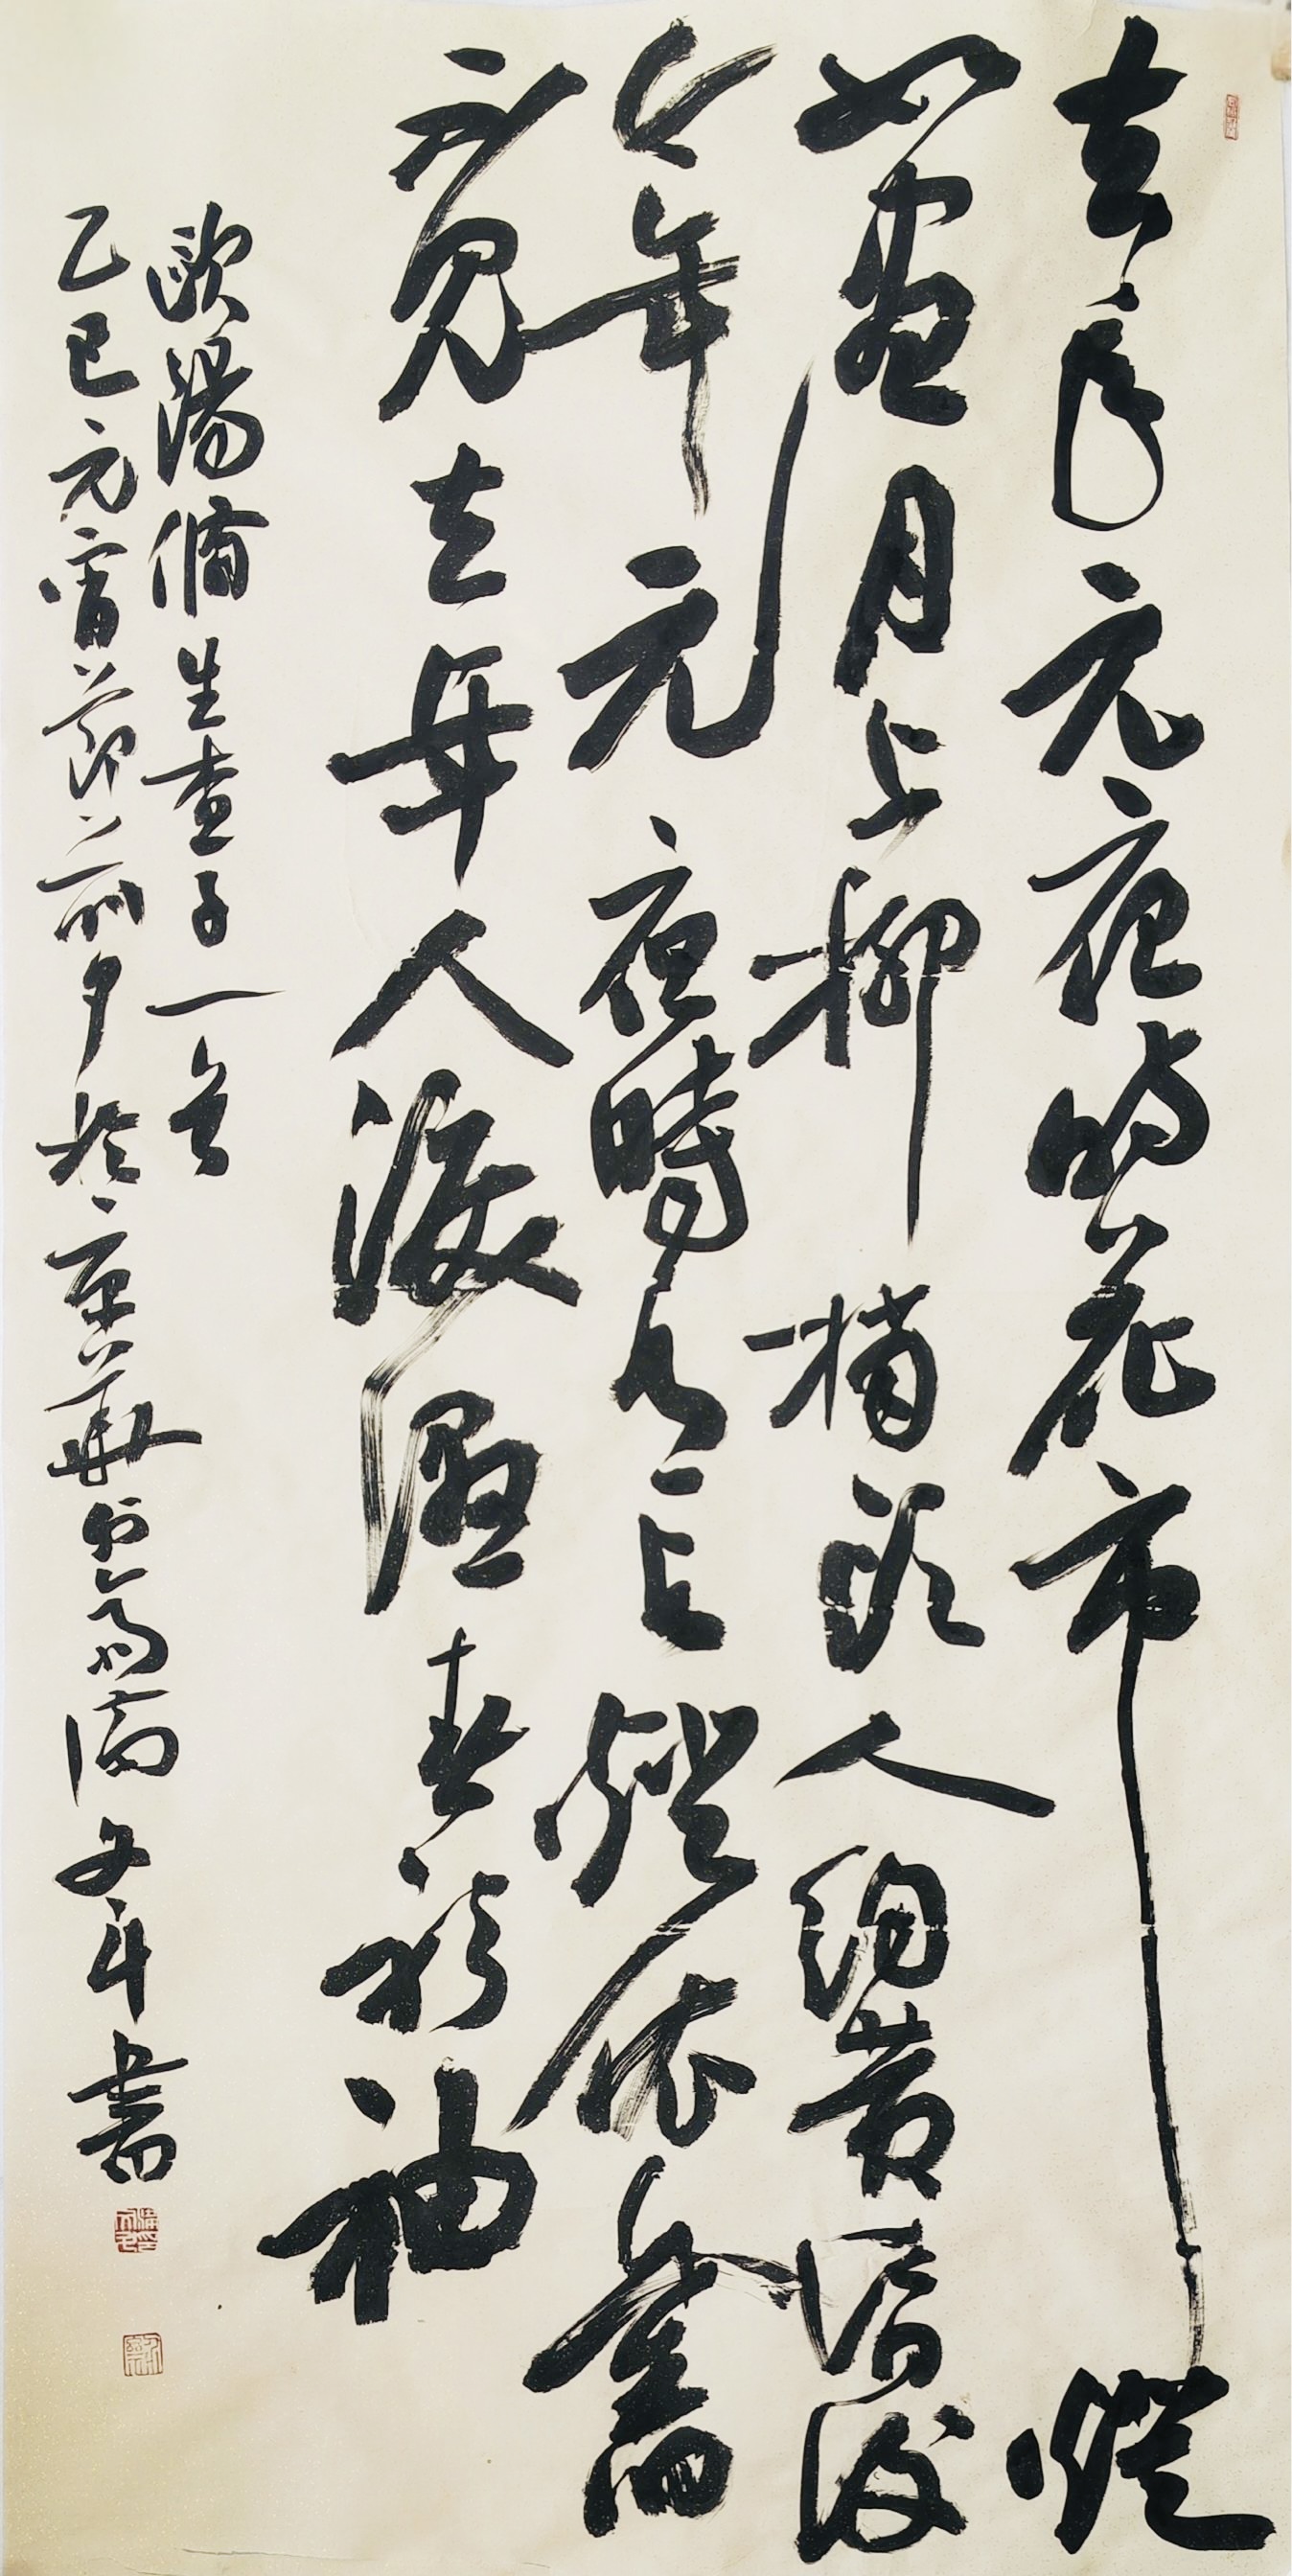 去年元夜時花市燈
如晝月上柳梢頭人約黄昏後
今年元夜時月與燈依舊
不見去年人淚濕春衫袖
歐陽脩生查子一首
乙巳元宵節前夕於京華 高 文斗書